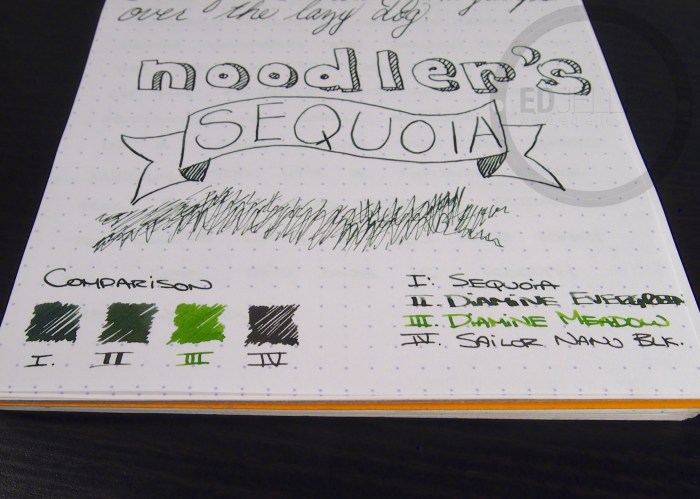 over the lazy dog.
noodler's
SEQUOIA
COMPARISON
I. II III IV
I: SEQUOIA
II DIAMINE EVERGREEN
III. DIAMINE MEADOW
IV. SAILOR NANO BLK.